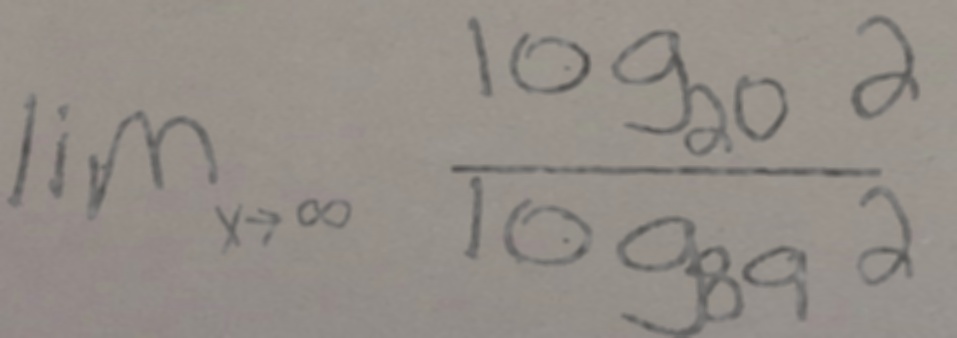 lim x→∞ log₂₀ 2 / log₈₉ 2